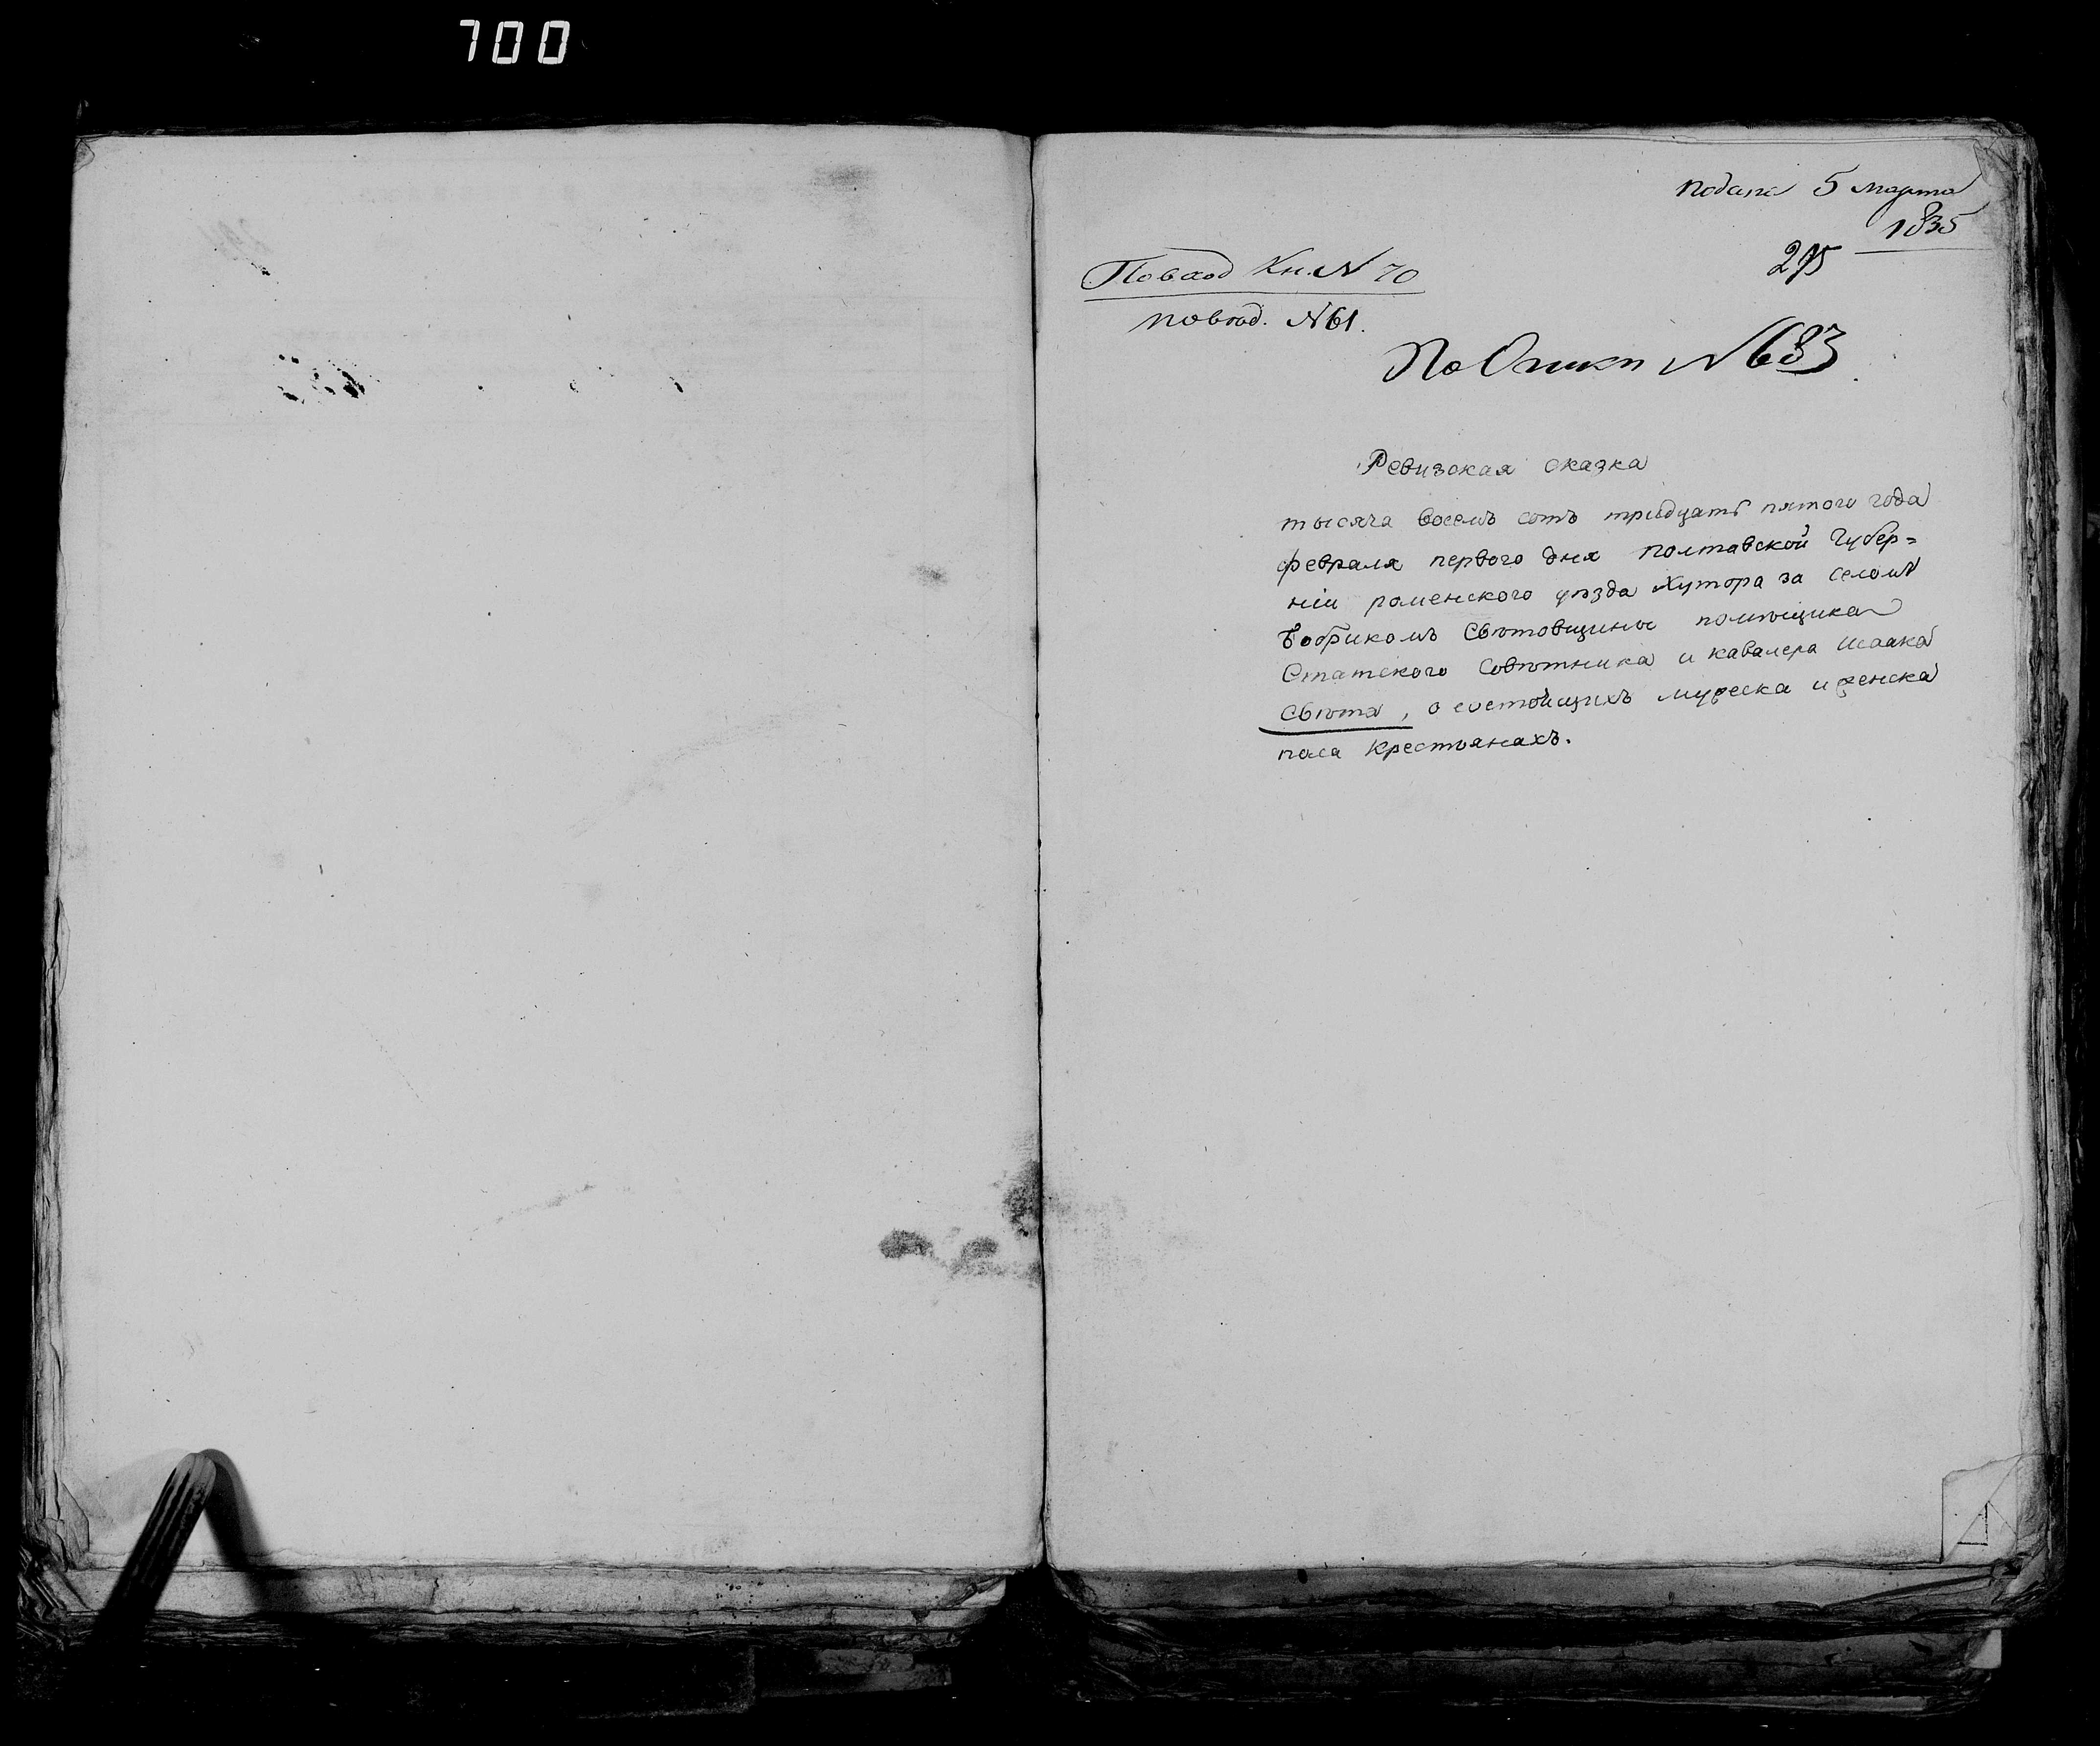 700
подана 5 марта
1835
295
По вход Кн. № 70
по вход. № 61.
По Описи № 683
Ревизская сказка
тысяча восемь сотъ тридцать пятого года
февраля первого дня полтавской Губер=
ніи роменского уѣзда Хутора за селомъ
Бобрикомъ Свѣтовщины помѣщика
Статского Совѣтника и кавалера Исаака
Свѣта, о состоящихъ мужеска и женска
пола Крестьянахъ.